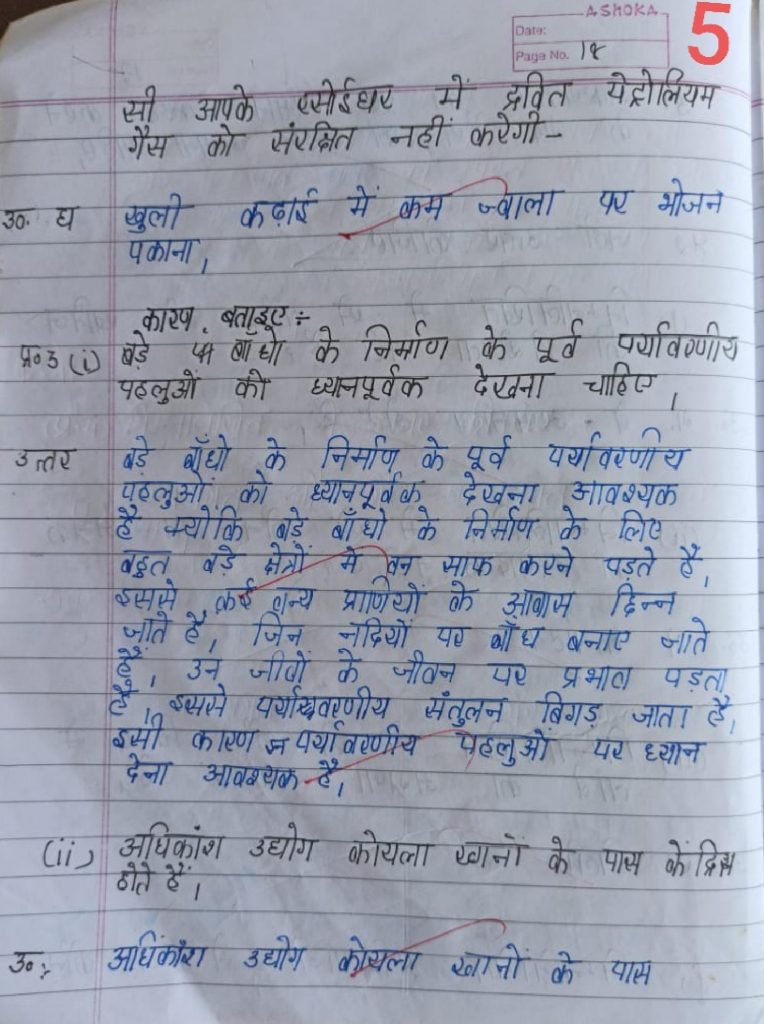 ASHOKA
5
Date:
Page No. 18
सी आपके रसोईघर में द्रवित पेट्रोलियम
गैस को संरक्षित नहीं करेगी -
उ० घ खुली कढ़ाई में कम ज्वाला पर भोजन
पकाना।
कारण बताइए :-
प्र० 3 (i) बड़े बाँधो के निर्माण के पूर्व पर्यावरणीय
पहलुओं को ध्यानपूर्वक देखना चाहिए।
उत्तर बड़े बाँधो के निर्माण के पूर्व पर्यावरणीय
पहलुओं को ध्यानपूर्वक देखना आवश्यक
है क्योंकि बड़े बाँधो के निर्माण के लिए
बहुत बड़े क्षेत्रों में वन साफ करने पड़ते है,
इससे कई वन्य प्राणियों के आवास छिन्न
जाते है, जिन नदियों पर बाँध बनाए जाते
हैं, उन जीवों के जीवन पर प्रभाव पड़ता
है, इससे पर्यावरणीय संतुलन बिगड़ जाता है,
इसी कारण पर्यावरणीय पहलुओं पर ध्यान
देना आवश्यक है।
(ii) अधिकांश उद्योग कोयला खानों के पास केंद्रित
होते हैं।
उ० :- अधिकांश उद्योग कोयला खानों के पास